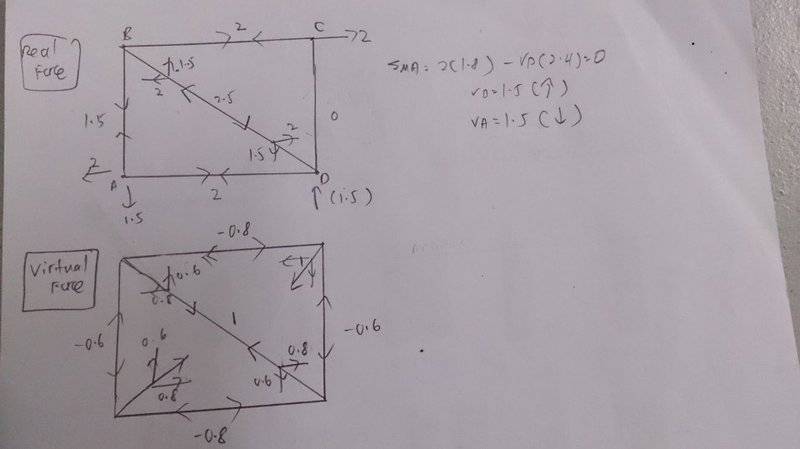 Real
Force
B
2
C
2
1.5
2
2.5
1.5
0
2
1.5
2
A
1.5
2
D
(1.5)
ΣMA = 2(1.8) - VD(2.4)=0
VD=1.5 (↑)
VA=1.5 (↓)
Virtual
Force
-0.8
0.6
0.8
1
1
-0.6
-0.6
0.6
0.8
0.8
0.6
-0.8